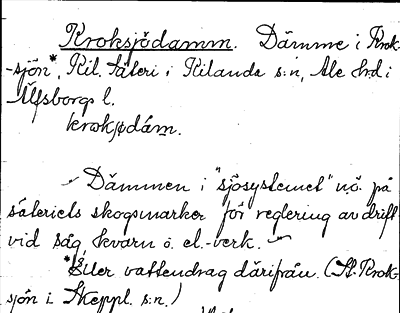 Kroksjödamm. Dämme i Krok-
-sjön*, Kil. Säteri i Kilanda s:n, Ale hd i
Älfsborgs l.
krokjødám.
Dämmen i "sjösystemet" n.ö. på
säteriets skogsmarker för reglering av drift
vid såg, kvarn o. el.-verk.
*Eller vattendrag därifrån. (St. Krok-
sjön i Skeppl. s:n.)